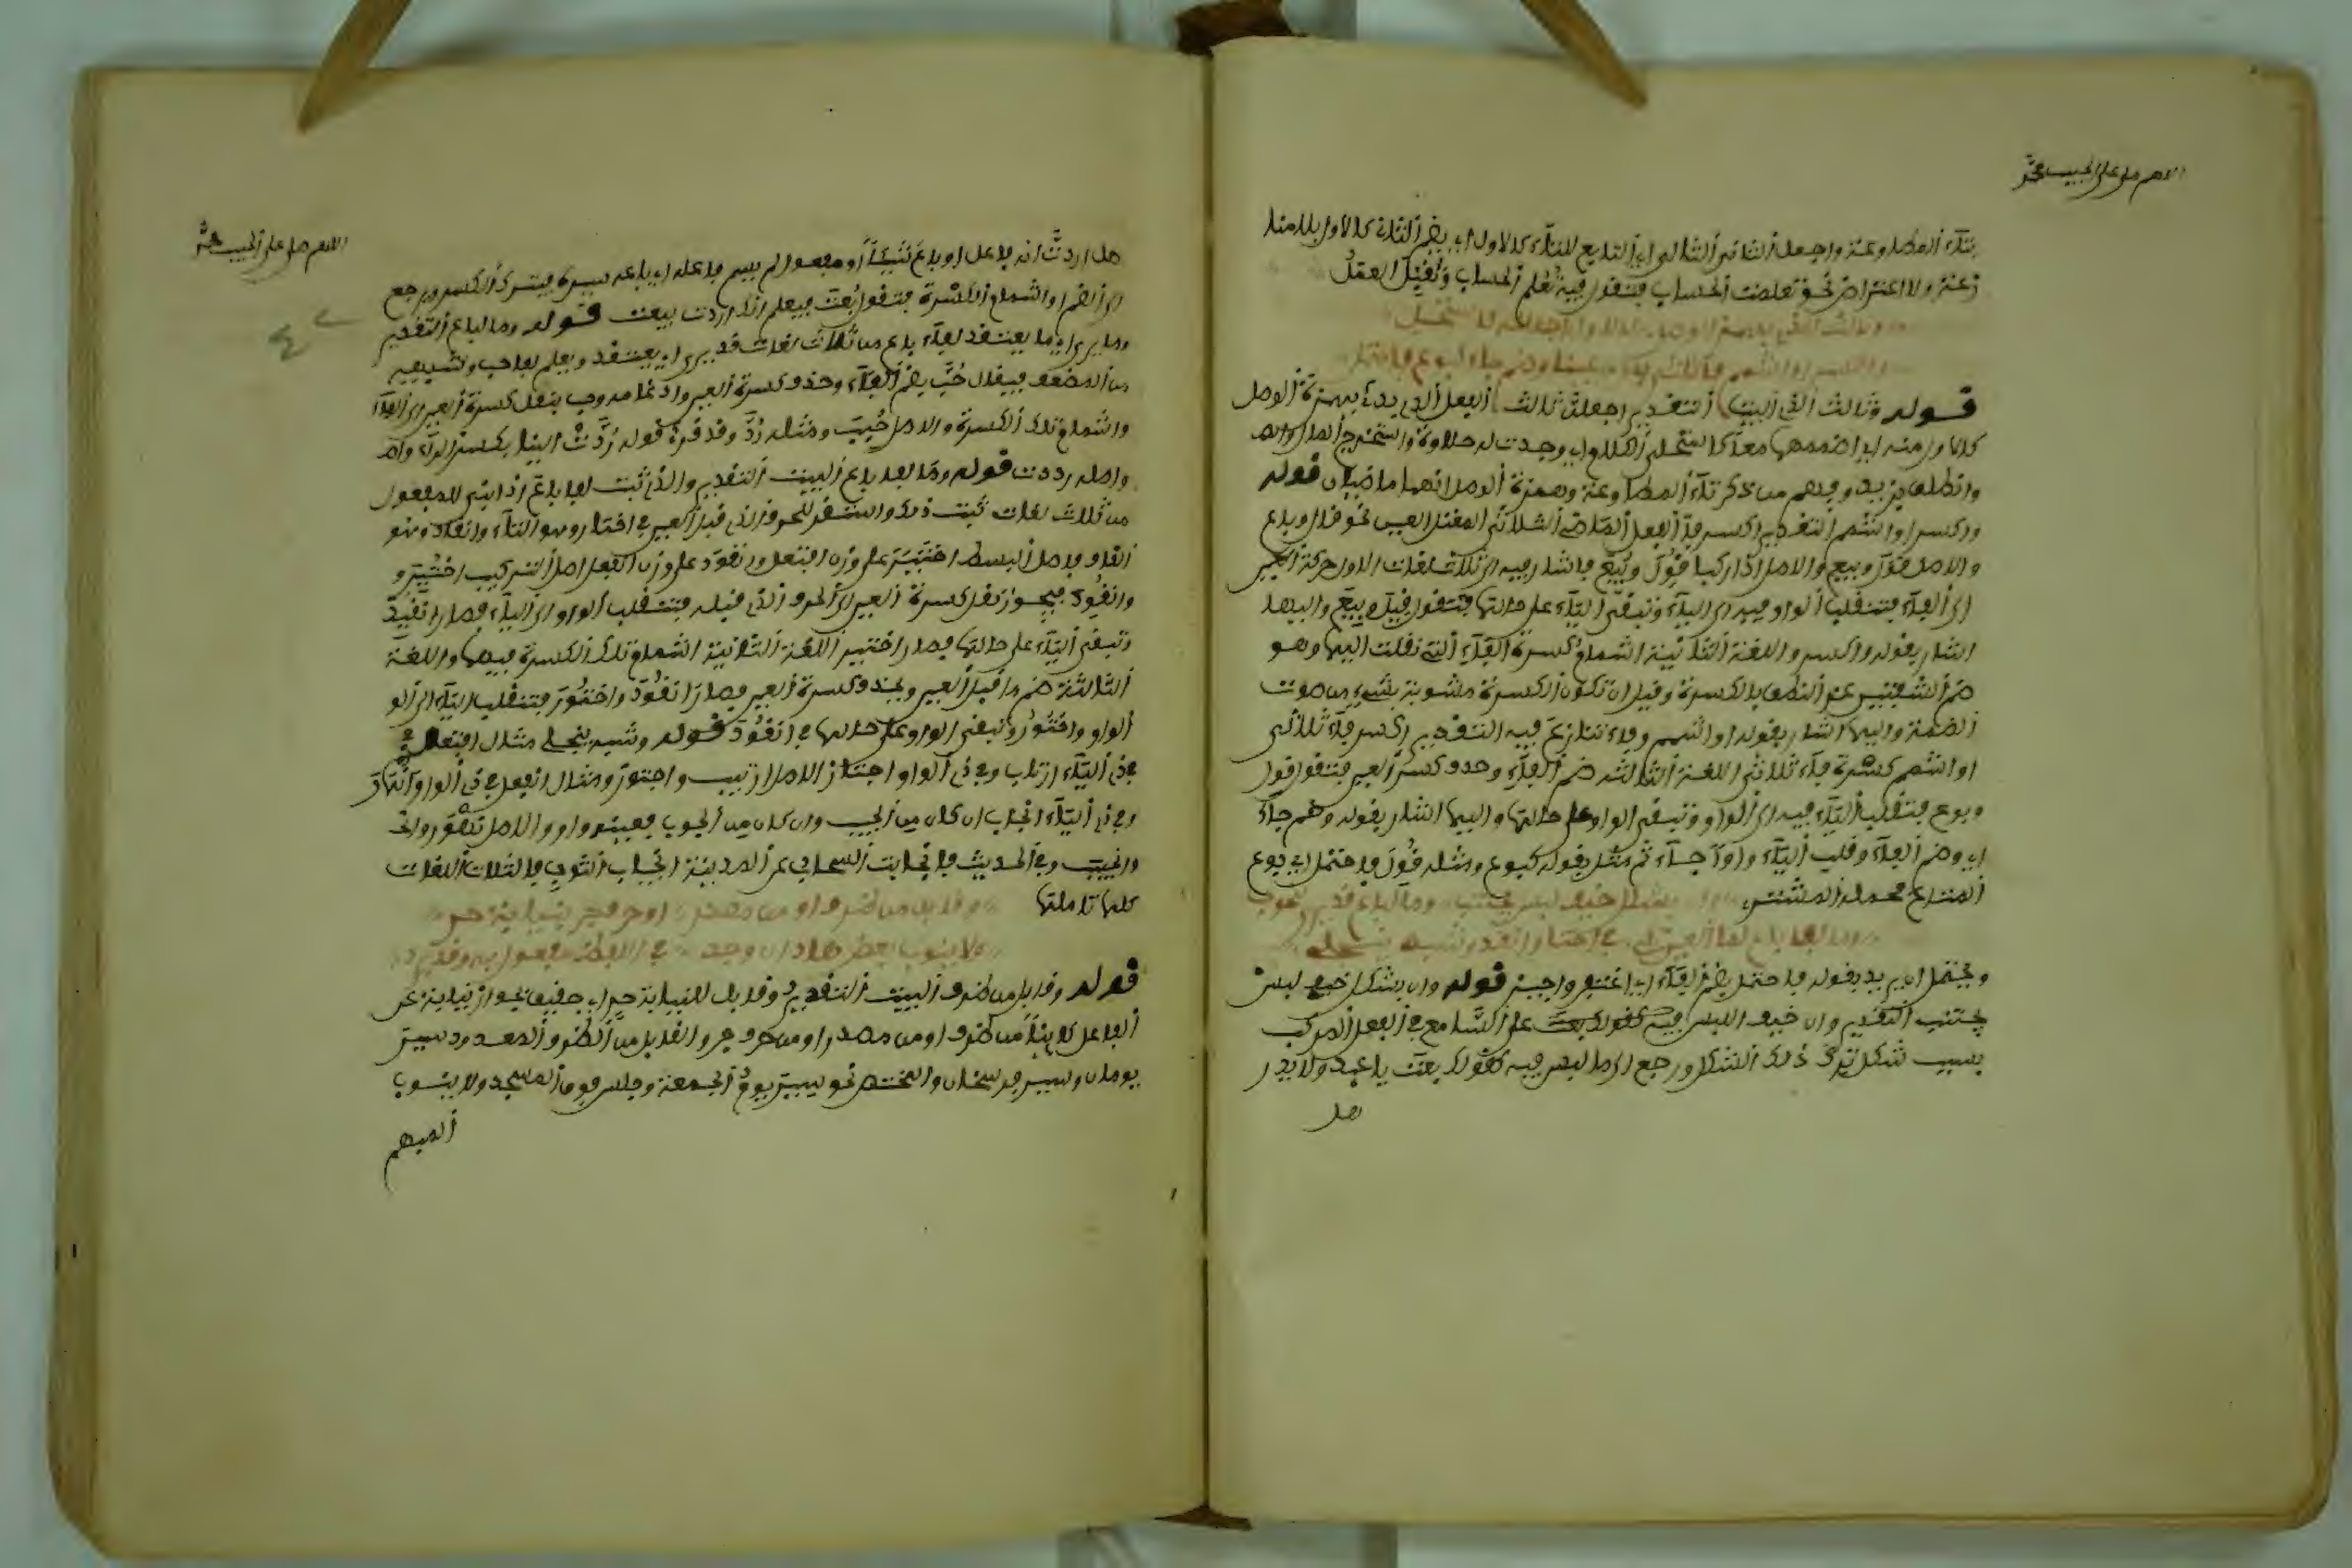 اللهم صل على الحبيب محمد
بتاء المطاوعة واجعل الثاني التالي اي التابع للتاء كالاول اي بضم التاء كالاول بلا منا
زعة ولا اعتراض نحو تعلمت الحساب فتقول فيه تعلم الحساب وتغيل العقل
وثالث الذي بهمز الوصل كالاول اجعلنه كاستحلي
واكسر او اشمم فا ثلاثي اعل عينا وضم جا كبوع فاحتمل
قوله وثالث الذي البيت التقدير اجعلن ثالث الفعل الذي بدئ بهمزة الوصل
كالاول منه اي اضممهما معا كاستحلي الكلام اي وجدت له حلاوة واستخرج المال
وانطلق بزيد وفهم من ذكر تاء المطاوعة وهمزة الوصل انهما ماضيان قوله
واكسر او اشمم التقدير اكسر فاء الفعل الماضي الثلاثي المعتل العين نحو قال وباع
والاصل قول وبيع والاصل اذا ركبا قول وبيع فاشار فيه الى ثلاث لغات الاول حركة العين
الى الفاء فتنقلب الواو فيه الى الياء وتبقى الياء على حالتها فتقول قيل وبيع واليها
اشار بقوله واكسر واللغة الثانية اشمام كسرة الفاء التي نقلت اليها وهو
ضم الشفتين عند النطق بالكسرة وقيل ان تكون الكسرة مشوبة بشيء من صوت
الضمة واليها اشار بقوله او اشمم وفاء تنازع فيه التقدير اكسر فاء ثلاثي
او اشمم كسرة فاء ثلاثي اللغة الثالثة ضم الفاء وحذف كسر العين فتقول قول
وبوع فتقلب الياء فيه الى الواو وتبقى الواو على حالتها واليها اشار بقوله وضم جاء
اي وضم الفاء وقلب الياء واوا جاء ثم مثل بقوله كبوع ومثله قول فاحتمل اي بوع
وان بشكل خيف لبس يجتنب وما لباع قد يرى لنحو حب
وما لفا باع لما العين تلي في اختار وانقاد وشبه ينجلي
ويحتمل ان يريد بقوله فاحتمل بضم الفاء اي اغتفر واجيز قوله وان بشكل خيف لبس
يجتنب التقدير وان خيف اللبس فيه كقولك بعت على السامع في الفعل المركب
بسبب شكل ترك ذلك الشكل ورجع الى ما لبس فيه كقولك بعت يا عبد ولا يدر
هل
اللهم صل على الحبيب محمد
هل اردت انه فاعل او باع شيئا او مفعول لم يسم فاعله اي باعه سيده فيترك الكسر ويرجع
الى الضم او اشمام الكسرة فتقول بعت فيعلم انك اردت بيعت قوله وما لباع التقدير
وما يرى اي ما يعتقد لفاء باع من ثلاث لغات قد يرى اي يعتقد ويعلم لفا حب وشبهه
من المضعف فيقال حب بضم الفاء وحذف كسرة العين وادغامه وحب بنقل كسرة العين الى الفاء
واشمام تلك الكسرة والاصل حبب ومثله رد وقد قرئ قوله ردت الينا بكسر الراء
واصله رددت قوله وما لفا باع البيت التقدير والذي ثبت لفا باع اذا بني للمفعول
من ثلاث لغات ثبت ذلك واستقر للحرف الذي قبل العين في اختار وهو التاء وانقاد وهو
القاف واصل البسط اختير على وزن افتعل وانقود على وزن انفعل اصل التركيب اختير و
وانقود فيجوز نقل كسرة العين الى الحرف الذي قبله فتنقلب الواو الى الياء فصار انقيد
وتبقى الياء على حالتها فصار اختير اللغة الثانية اشمام تلك الكسرة فيهما واللغة
الثالثة ضم ما قبل العين وبحذف كسرة العين فصار انقود واختور فتنقلب الياء الى الو
الواو واختور وتبقى الواو على حالها في انقود قوله وشبه ينجلي مثال افتعل
في ذي الياء ارتاب وفي ذي الواو اجتاز الاصل ارتيب واجتوز ومثال انفعل في ذي الواو انهار
وفي ذي الياء انجاب ان كان من الجيب وان كان من الجوب فعينه واو والاصل
وانجيب وفي الحديث فانجابت السحاب عن المدينة انجياب الثوب فالثلاث اللغات
كلها تاملتها
وقابل من ظرف او من مصدر او حرف جر بنيابة حر
ولا ينوب بعض هذا ان وجد في اللفظ مفعول به وقد يرد
قوله وقابل من ظرف البيت التقدير وقابل للنيابة حر اي حقيق بجواز نيابة عن
الفاعل كائنا من ظرف او من مصدر او من حرف جر والقابل من الظرف المعدود سير
يومان وسير فرسخان والمختص نحو سير يوم الجمعة وجلس فوق المسجد ولا ينوب
المبهم